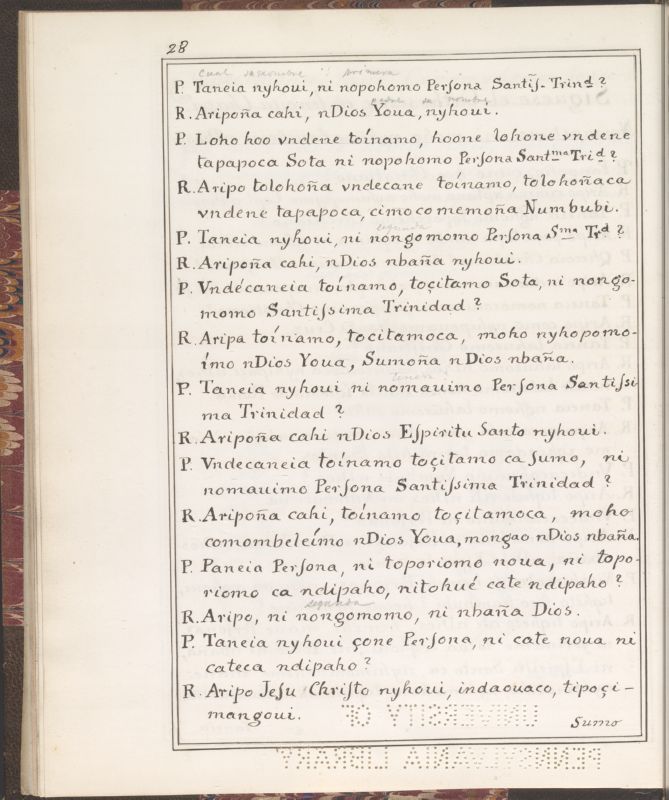 28
cual su nombre primera
P. Taneia nyhoui, ni nopohomo Perſona Santiſ̃s- Trinᵈ?
padre su nombre
R. Aripoña cahi, nDios Youa, nyhoui.
P. Loho hoo vndene toínamo, hoone lohone vndene
tapapoca Sota ni nopohomo Perſona Santᵐᵃ Triᵈ?
R. Aripo tolohoña vndecane toínamo, tolohoñaca
vndene tapapoca, cimocomemoña Numbubi.
segunda
P. Taneia nyhoui, ni nongomomo Perſona Sᵐᵃ Trᵈ?
R. Aripoña cahi, nDios nbaña nyhoui.
P. Vndécaneia toínamo, toçitamo Sota, ni nongo-
momo Santiſsima Trinidad?
R. Aripa toínamo, tocitamoca, moho nyhopomo-
ímo nDios Youa, Sumoña nDios nbaña.
tercera
P. Taneia nyhoui ni nomauimo Perſona Santiſsi
ma Trinidad?
R. Aripoña cahi nDios Eſpiritu Santo nyhoui.
P. Vndecaneia toínamo toçitamo ca sumo, ni
nomauimo Perſona Santiſsima Trinidad?
R. Aripoña cahi, toínamo toçitamoca, moho
comombeleímo nDios Youa, mongao nDios nbaña.
P. Paneia Perſona, ni toporiomo noua, ni topo-
riomo ca ndipaho, nitohué cate ndipaho?
segunda
R. Aripo, ni nongomomo, ni nbaña Dios.
P. Taneia nyhoui çone Perſona, ni cate noua ni
cateca ndipaho?
R. Aripo Jeſu Chriſto nyhoui, indaouaco, tipoçi-
mangoui.
Sumo
UNIVERSITY OF
PENNSYLVANIA LIBRARY